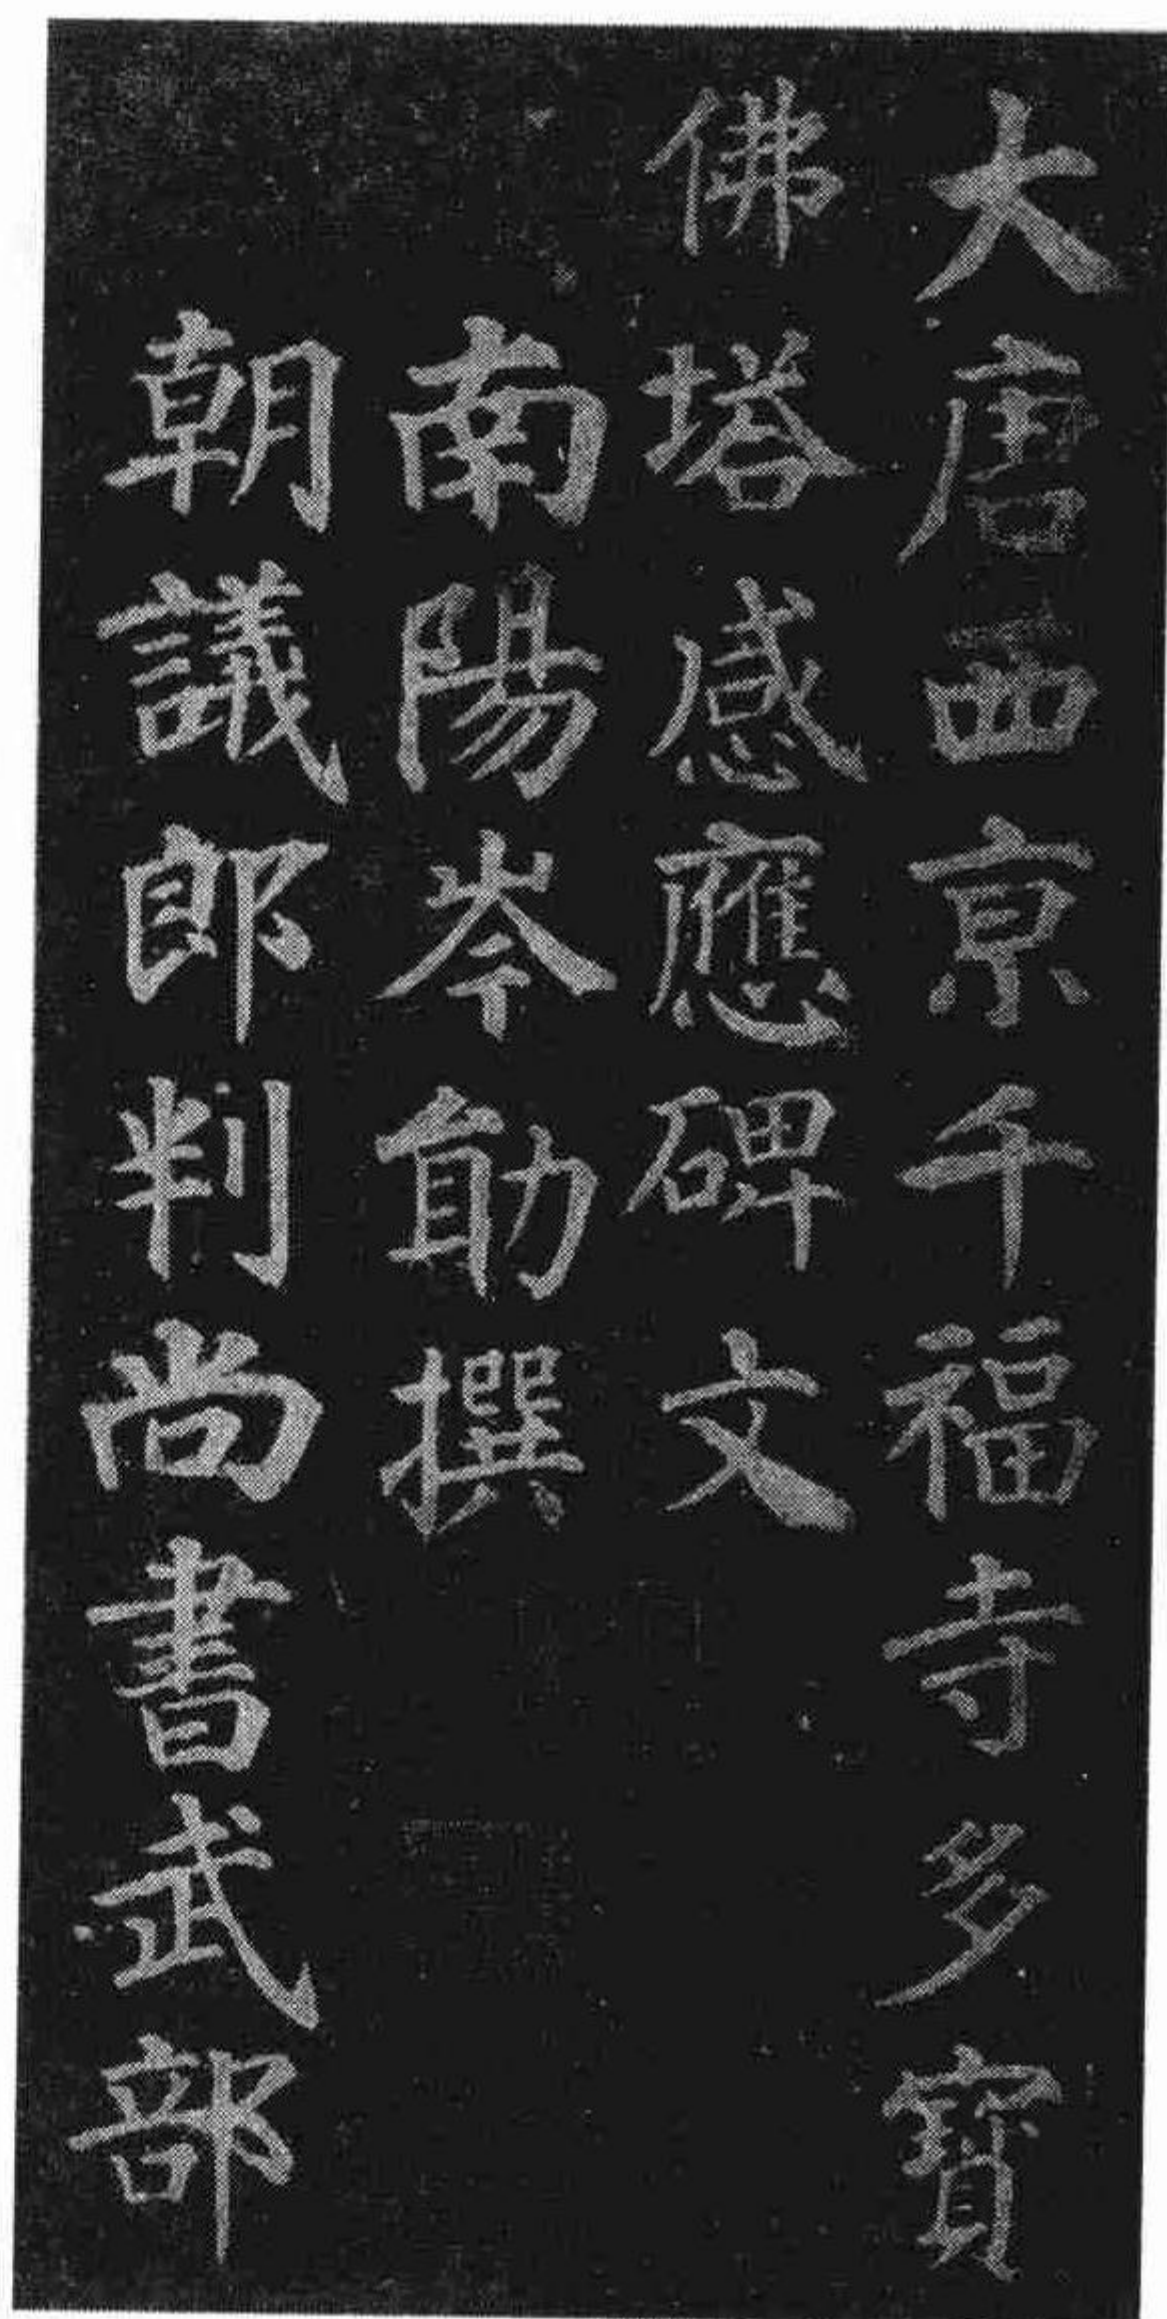 大唐西京千福寺多寶
佛塔感應碑文
南陽岑勛撰
朝議郎判尚書武部